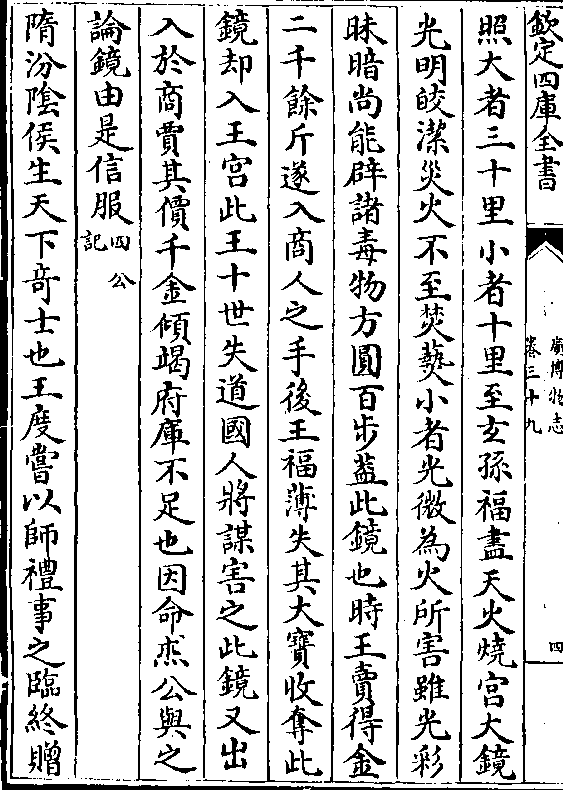 欽定四庫全書
廣博物志
卷三十九
四
照大者三十里小者十里至玄孫福盡天火燒宮大鏡
光明皎潔災火不至焚爇小者光微為火所害雖光彩
昧暗尚能辟諸毒物方圓百步葢此鏡也時王賣得金
二千餘斤遂入商人之手後王福薄失其大寶收奪此
鏡却入王宮此王十世失道國人將謀害之此鏡又出
入於商賈其價千金傾竭府庫不足也因命杰公與之
論鏡由是信服四公記
隋汾陰侯生天下奇士也王度嘗以師禮事之臨終贈